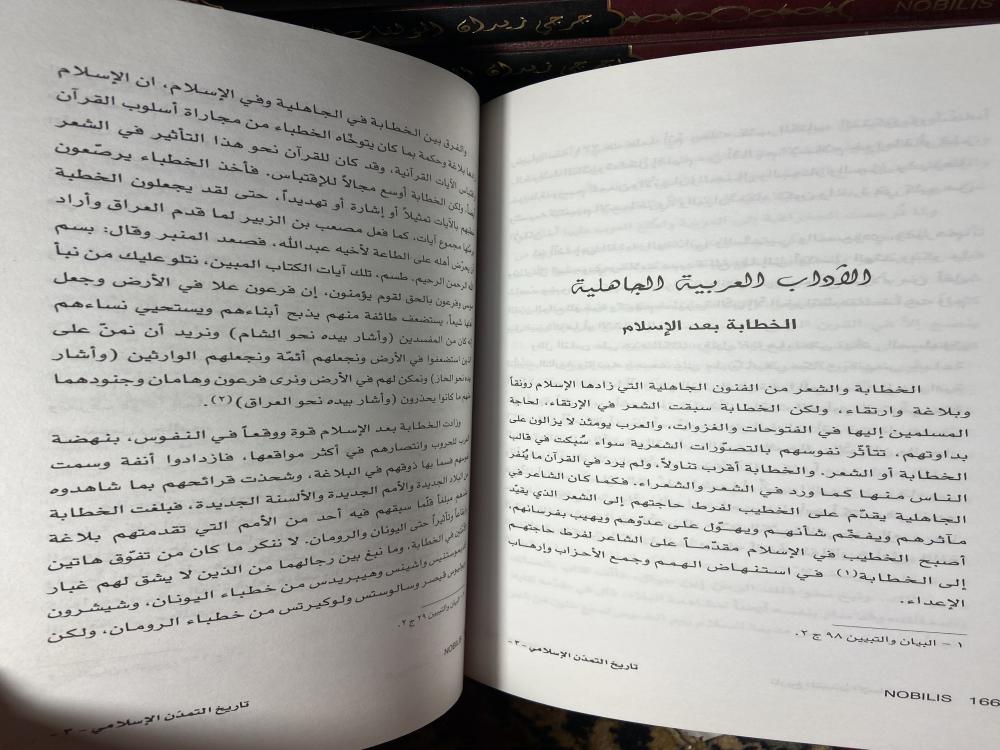 جرجي زيدان المؤلفات
NOBILIS
جرجي زيدان
الآداب العربية الجاهلية
الخطابة بعد الإسلام
الخطابة والشعر من الفنون الجاهلية التي زادها الإسلام رونقاً
وبلاغة وارتقاء، ولكن الخطابة سبقت الشعر في الإرتقاء، لحاجة
المسلمين إليها في الفتوحات والغزوات، والعرب يومئذ لا يزالون على
بداوتهم، تتأثّر نفوسهم بالتصوّرات الشعرية سواء سُبكت في قالب
الخطابة أو الشعر. والخطابة أقرب تناولاً، ولم يرد في القرآن ما يُنفر
الناس منها كما ورد في الشعر والشعراء. فكما كان الشاعر في
الجاهلية يقدّم على الخطيب لفرط حاجتهم إلى الشعر الذي يقيّد
مآثرهم ويفخّم شأنهم ويهوّل على عدوّهم ويهيب بفرسانهم،
أصبح الخطيب في الإسلام مقدّماً على الشاعر لفرط حاجتهم
إلى الخطابة(١) في استنهاض الهمم وجمع الأحزاب وإرهاب
الإعداء.
١ - البيان والتبيين ٩٨ ج ٢.
تاريخ التمدّن الإسلامي -٣-
NOBILIS 166
والفرق بين الخطابة في الجاهلية وفي الإسلام، ان الإسلام
بلاغة وحكمة بما كان يتوخّاه الخطباء من مجاراة أسلوب القرآن
الآيات القرآنية، وقد كان للقرآن نحو هذا التأثير في الشعر
ولكن الخطابة أوسع مجالاً للإقتباس. فأخذ الخطباء يرصّعون
بالآيات تمثيلاً أو إشارة أو تهديداً، حتى لقد يجعلون الخطبة
مجموع آيات، كما فعل مصعب بن الزبير لما قدم العراق وأراد
يحرّض أهله على الطاعة لأخيه عبدالله، فصعد المنبر وقال: بسم
الله الرحمن الرحيم. طسم. تلك آيات الكتاب المبين، نتلو عليك من نبأ
موسى وفرعون بالحق لقوم يؤمنون، إن فرعون علا في الأرض وجعل
شيعاً، يستضعف طائفة منهم يذبح أبناءهم ويستحيي نساءهم
كان من المفسدين (وأشار بيده نحو الشام) ونريد أن نمنّ على
الذين استضعفوا في الأرض ونجعلهم أئمّة ونجعلهم الوارثين (وأشار
بيده نحو الحاز) ونمكن لهم في الأرض ونرى فرعون وهامان وجنودهما
منهم ما كانوا يحذرون (وأشار بيده نحو العراق)(٢).
وزادت الخطابة بعد الإسلام قوة ووقعاً في النفوس، بنهضة
العرب للحروب وانتصارهم في أكثر مواقعها، فازدادوا أنفة وسمت
نفوسهم فسما بها ذوقهم في البلاغة، وشحذت قرائحهم بما شاهدوه
من البلاد الجديدة والأمم الجديدة والألسنة الجديدة، فبلغت الخطابة
مبلغاً قلّما سبقهم فيه أحد من الأمم التي تقدمتهم بلاغة
وتأثيراً حتى اليونان والرومان. لا ننكر ما كان من تفوّق هاتين
في الخطابة، وما نبغ بين رجالهما من الذين لا يشق لهم غبار
وأشينس وهيبريدس من خطباء اليونان، وشيشرون
قيصر وسالوستس ولوكيرتس من خطباء الرومان، ولكن
البيان والتبيين ٢٩ ج ٢.
NOBILIS
تاريخ التمدّن الإسلامي -٣-